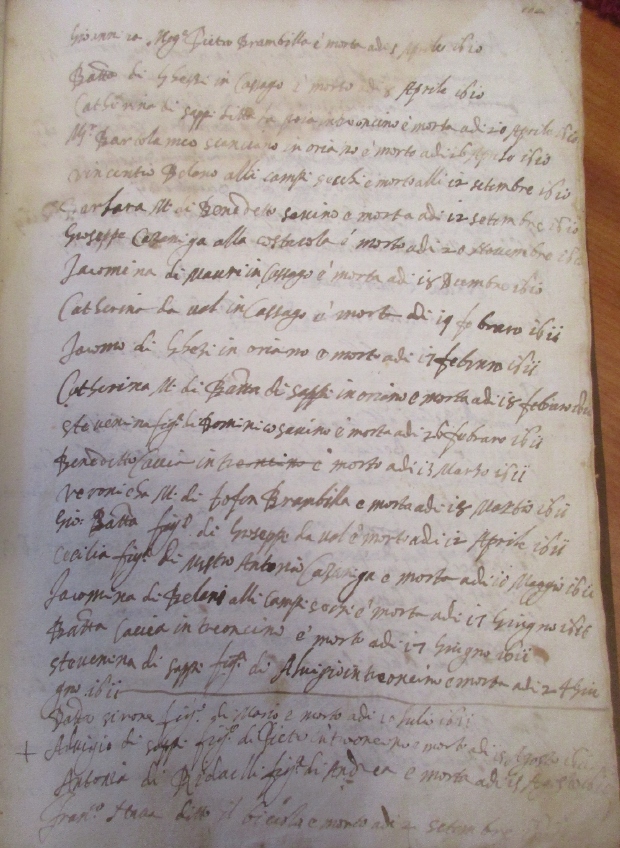 Giovannina Pietro Brambilla è morta adi 1 Aprile 1610
Batta di Ghezzi in Cassago è morto adi 8 Aprile 1610
Catherina di Sappi ditta la in treoncino è morta adi 20 Aprile 1610
Mr Bartolameo in oriano è morto adi 26 Aprile 1610
Vincentio Belono alli campi sechi è morto alli 12 setembre 1610
Barbara M. di Benedeto savino e morta adi 12 setembre 1610
Gioseppe Cazaniga alla costaiola è morto adi 20 Novembre 1610
Jacomina di Mauri in Cassago è morta adi 18 Dcembre 1610
Catherina da val in Cassago è morta adi 19 febraro 1611
Jacomo di Ghezi in oriano e morto adi 17 febraro 1611
Catherina M. di Batta di sappi in oriano e morta adi 18 febraro 1611
stevenina figa di Dominico savino è morta adi 26 febraro 1611
Benedetto Caccia in treoncino è morto adi 13 Marzo 1611
Veronicha M. di Tofen Brambilla e morta adi 18 Marzo 1611
Gio: Batta figo di Gioseppe da val è morto adi 12 Aprile 1611
Cecilia figa di Mstro Antonio Cazaniga e morta adi 10 Maggio 1611
Jacomina di Beloni alli campi sechi è morta adi 17 Giugno 1611
Batta Caccia in treoncino è morto adi 17 Giugno 1611
Stevenina di sappi figa di Aluigio in treoncino e morta adi 24 Giu
gno 1611
Batta sirone figo di Mario e morto adi Julio 1611
Aluigio di sappi figo di Pietro in treoncino e morto adi Agosto 1611
Antonia di Ridaelli figa di Andrea e morta adi 15 Agosto
Franco ditto il e morto adi 2 setembre